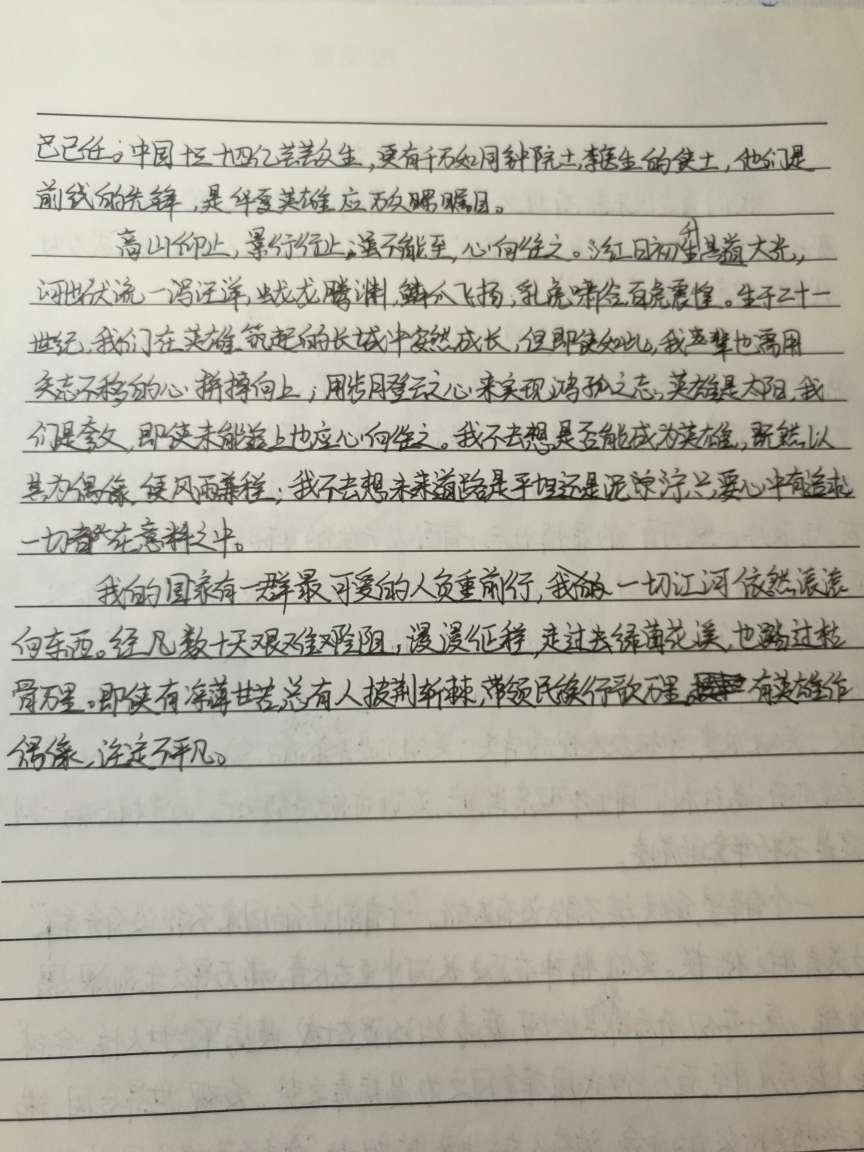 己己任。中国十四亿芸芸众生，更有千万如同钟院士李医生的侠士，他们是
前线的先锋，是华夏英雄应万众瞩目。
高山仰止，景行行止，虽不能至，心向往之。红日初升其道大光，
河出伏流一泻汪洋，龙腾渊，鳞爪飞扬，乳虎啸谷百兽震惶。生于二十一
世纪，我们在英雄筑起的长城中安然成长，但即使如此，我辈也需用
矢志不移的心拼搏向上；用步月登云之心来实现鸿孤之志。英雄是太阳，我
们是夸父，即使未能益上也应心向往之。我不去想是否能成为英雄，既然以
其为偶像，便风雨兼程；我不去想未来道路是平坦还是泥泞，只要心中有追求
一切都在意料之中。
我的国家有一群最可爱的人负重前行，一切江河依然滚滚
向东西。经几数十天艰难险阻，漫漫征程，走过去绿茵花溪，也踏过枯
骨万里。即使有凉薄世苦，总有人披荆斩棘，带领民族行歌万里，有英雄作
偶像，注定不平凡。